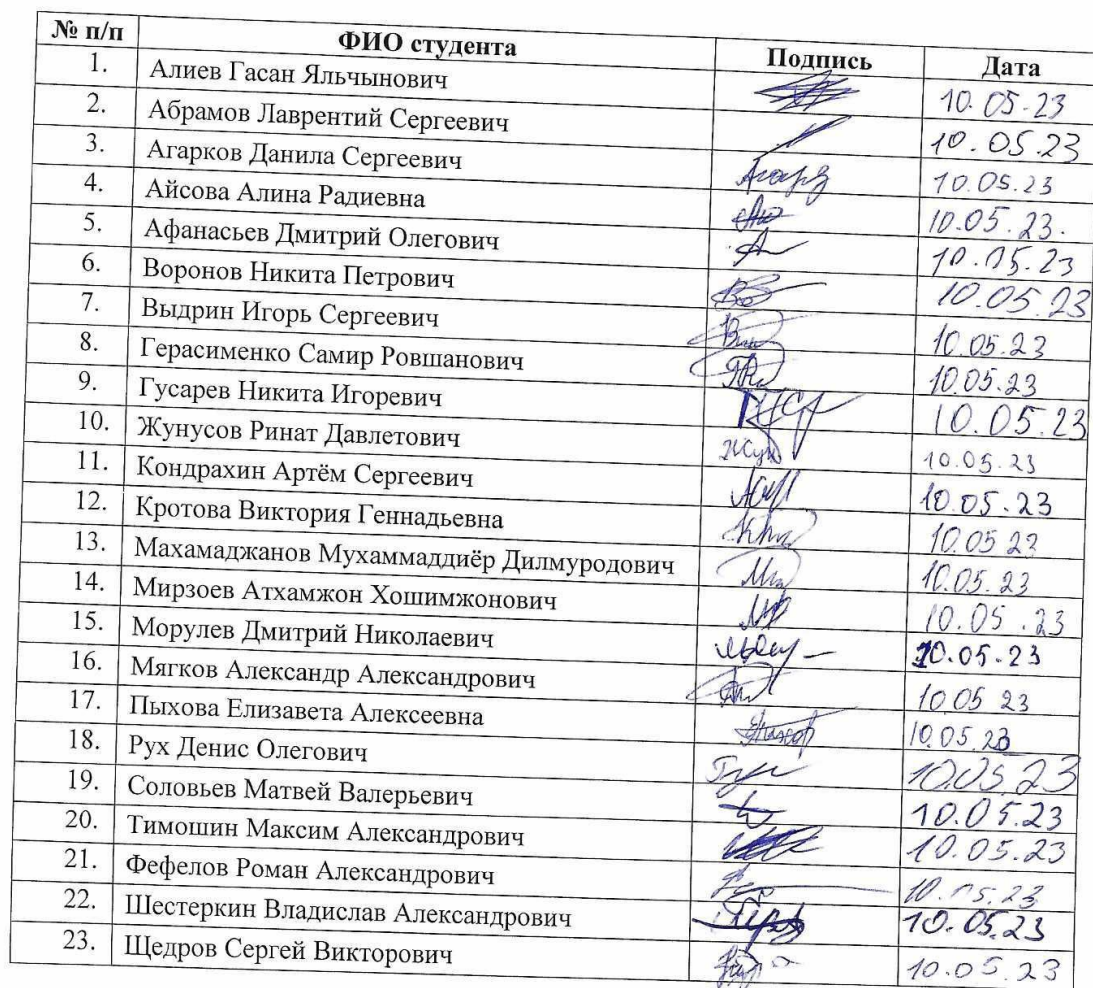 № п/п ФИО студента Подпись Дата
1. Алиев Гасан Яльчынович 10.05.23
2. Абрамов Лаврентий Сергеевич 10.05.23
3. Агарков Данила Сергеевич 10.05.23
4. Айсова Алина Радиевна 10.05.23.
5. Афанасьев Дмитрий Олегович 10.05.23
6. Воронов Никита Петрович 10.05.23
7. Выдрин Игорь Сергеевич 10.05.23
8. Герасименко Самир Ровшанович 10.05.23
9. Гусарев Никита Игоревич 10.05.23
10. Жунусов Ринат Давлетович 10.05.23
11. Кондрахин Артём Сергеевич 10.05.23
12. Кротова Виктория Геннадьевна 10.05.23
13. Махамаджанов Мухаммаддиёр Дилмуродович 10.05.23
14. Мирзоев Атхамжон Хошимжонович 10.05.23
15. Морулев Дмитрий Николаевич 10.05.23
16. Мягков Александр Александрович 10.05 23
17. Пыхова Елизавета Алексеевна 10.05.23
18. Рух Денис Олегович 10.05.23
19. Соловьев Матвей Валерьевич 10.05.23
20. Тимошин Максим Александрович 10.05.23
21. Фефелов Роман Александрович 10.05.23
22. Шестеркин Владислав Александрович 10.05.23
23. Щедров Сергей Викторович 10.05.23